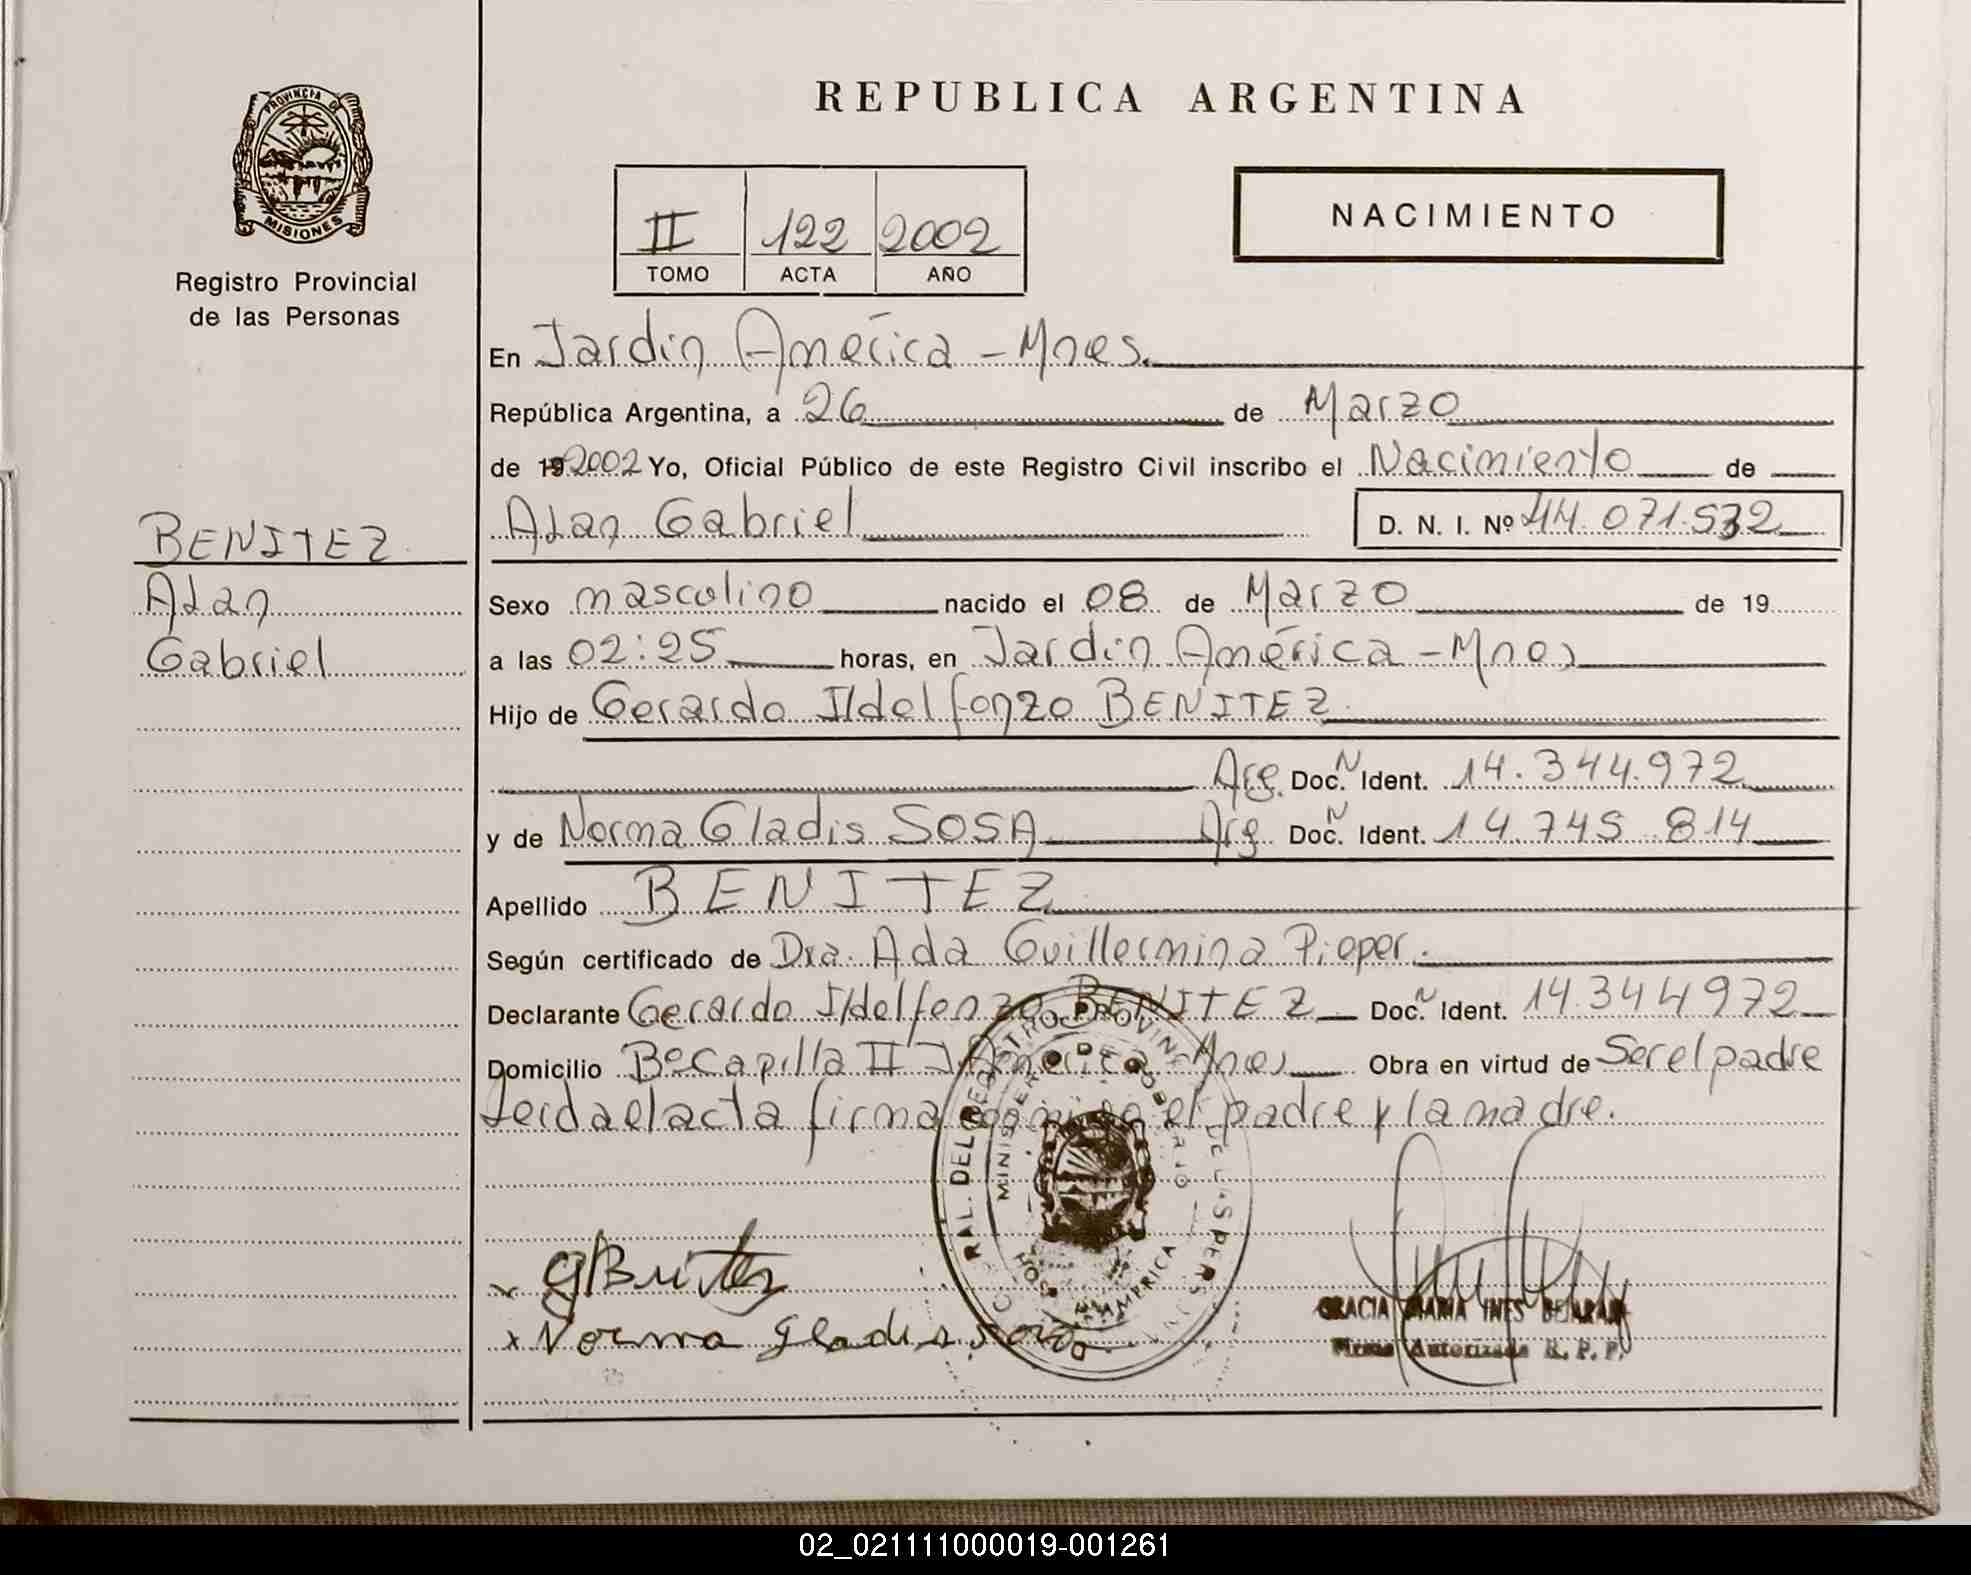 PROVINCIA DE
MISIONES
Registro Provincial
de las Personas
BENITEZ
Alan
Gabriel
REPUBLICA ARGENTINA
II 122 2002
TOMO ACTA AÑO
NACIMIENTO
En Jardin América - Mnes.
República Argentina, a 26 de Marzo
de 19 2002 Yo, Oficial Público de este Registro Civil inscribo el Nacimiento de
Alan Gabriel D. N. I. Nº 44.071.532
Sexo masculino nacido el 08 de Marzo de 19
a las 02:25 horas, en Jardin América - Mnes
Hijo de Gerardo Ildelfonzo BENITEZ
Arg. Doc. N Ident. 14.344.972
y de Norma Gladis SOSA Arg. Doc. N Ident. 14.745.814
Apellido BENITEZ
Según certificado de Dra. Ada Guillermina Pieper.
Declarante Gerardo Ildelfonzo BENITEZ Doc. N Ident. 14.344.972
Domicilio Bº Capilla II J. América - Mnes Obra en virtud de Ser el padre
Leida el acta firma conmigo el padre y la madre.
GBenitez
x Norma Gladis Sosa
GRACIA MARIA INES BEJARAN
Firma Autorizada R. P. P.
02_021111000019-001261